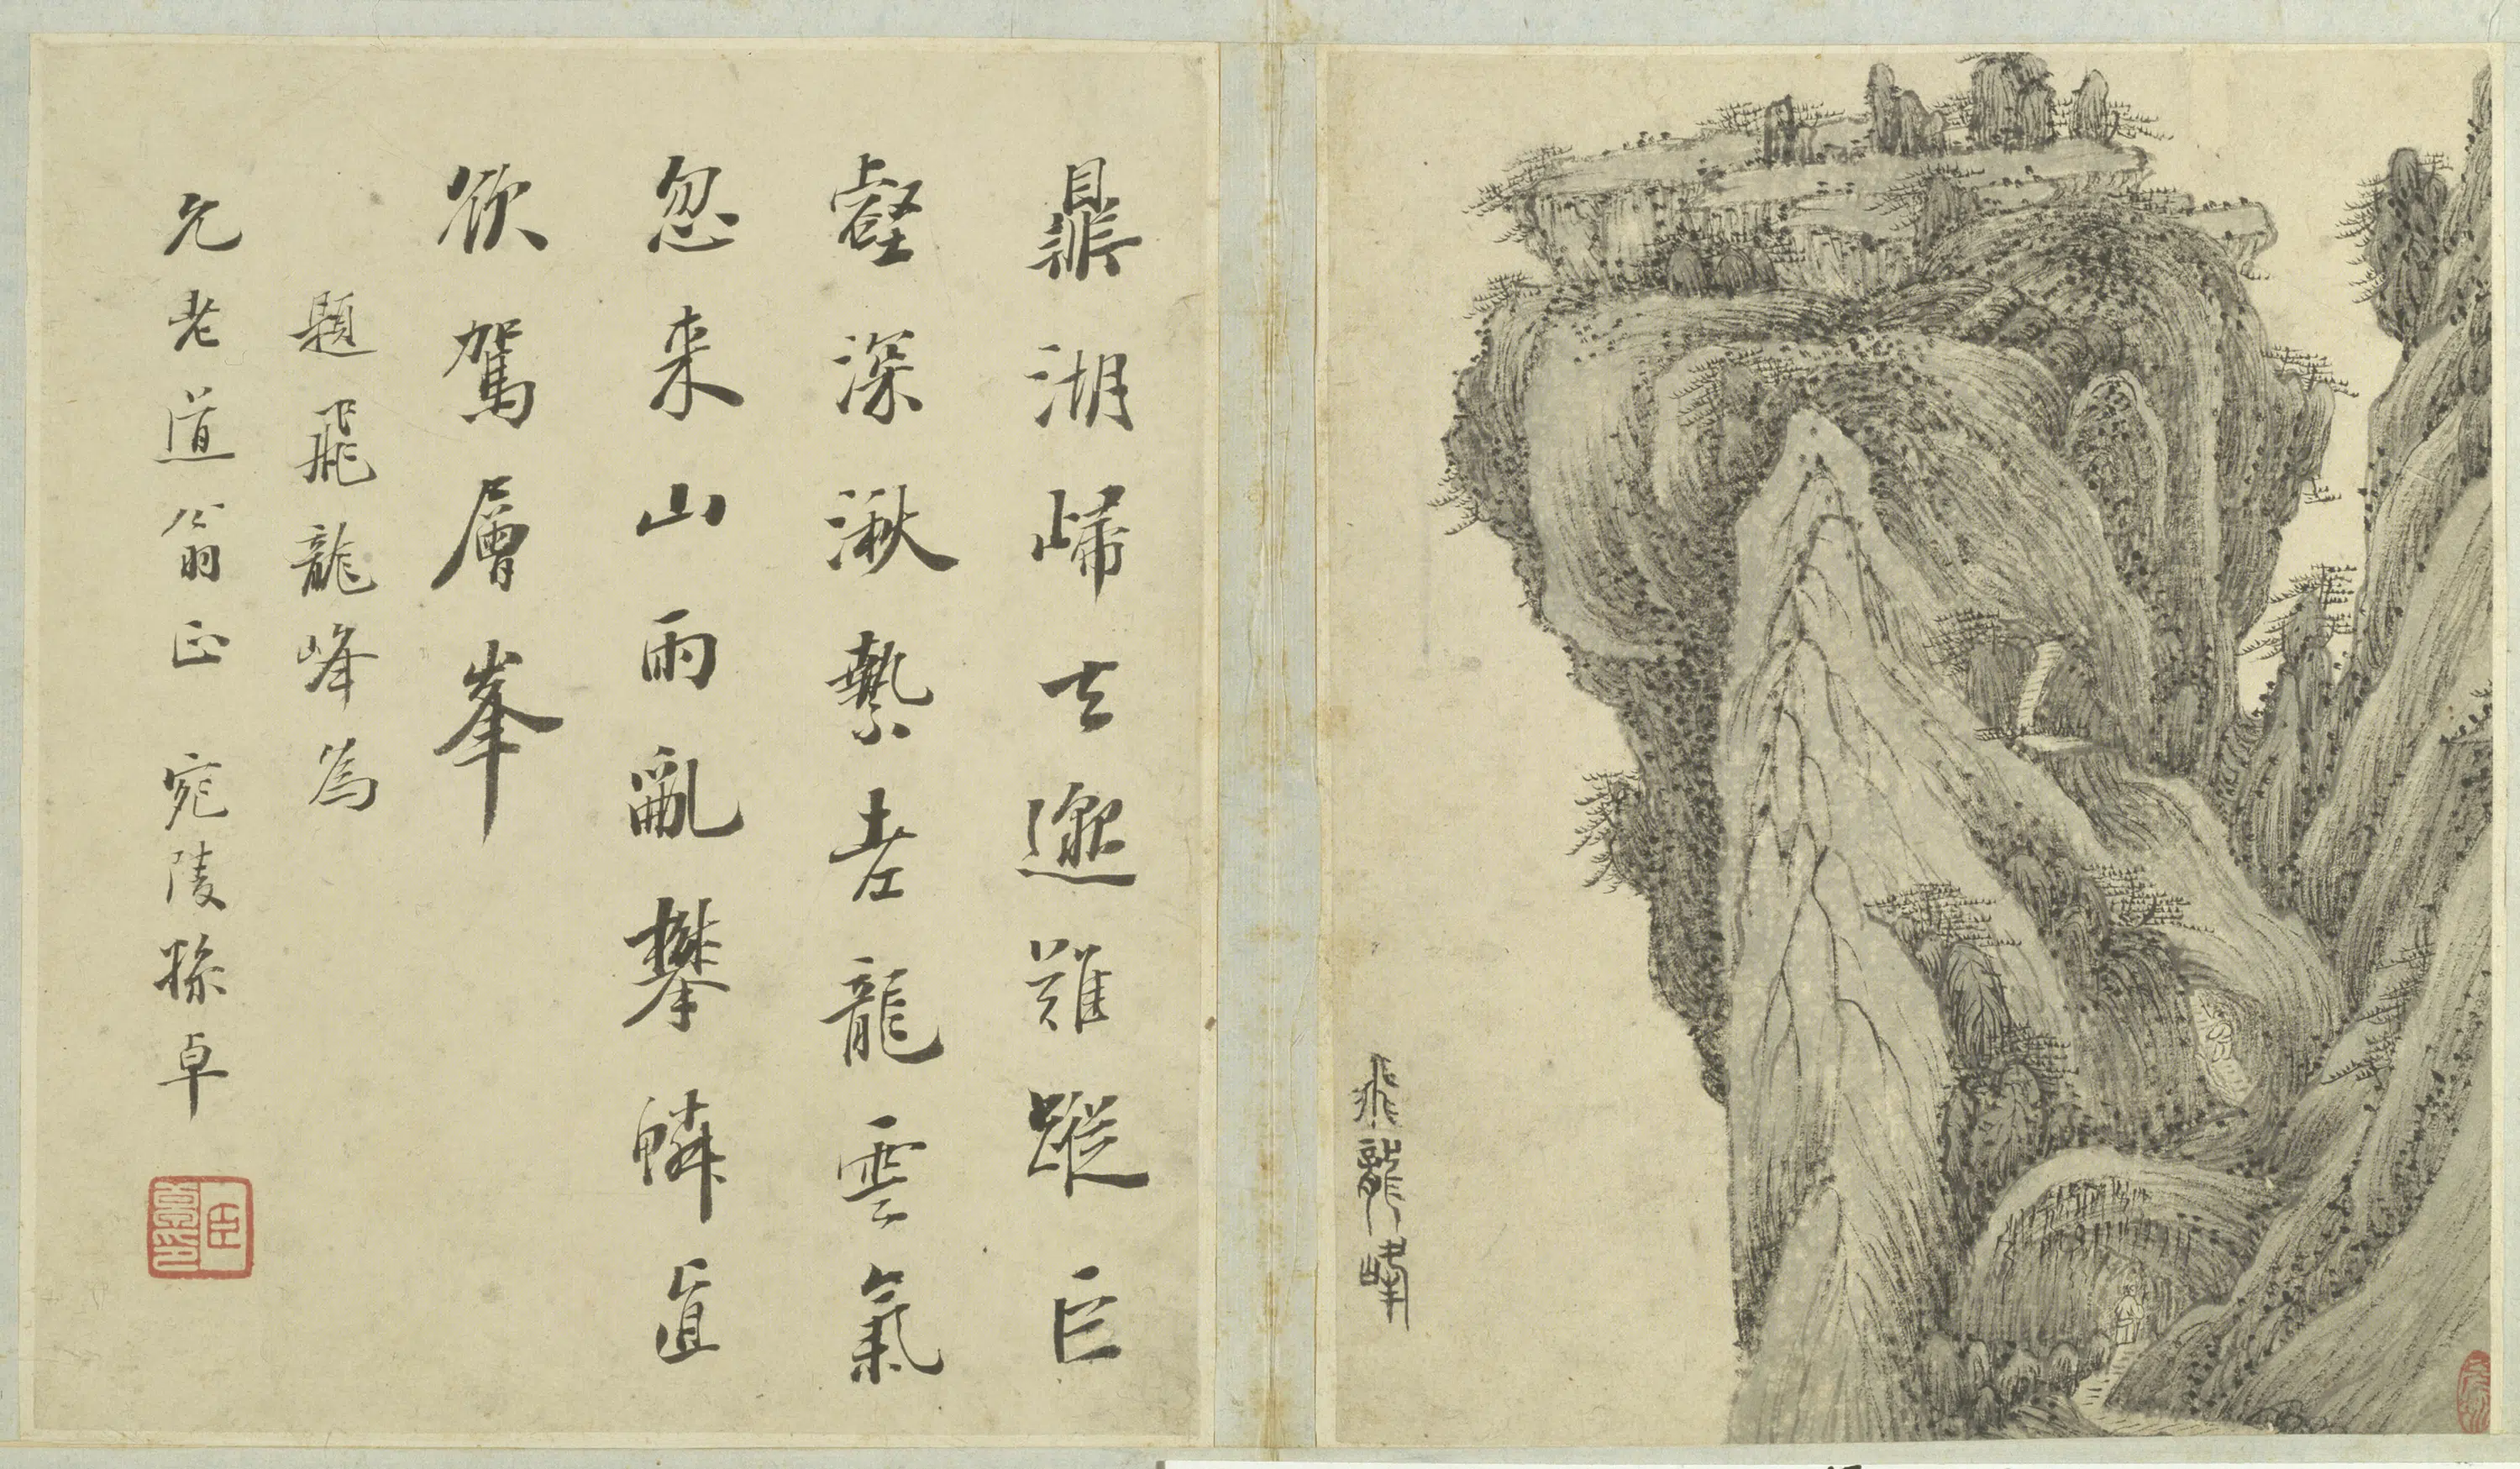 飛龍峰
鼎湖歸去邈難蹤巨
壑深湫縶老龍雲氣
忽来山雨亂攀鱗直
欲駕層峯
題飛龍峰為
允老道翁正 宛陵孫卓